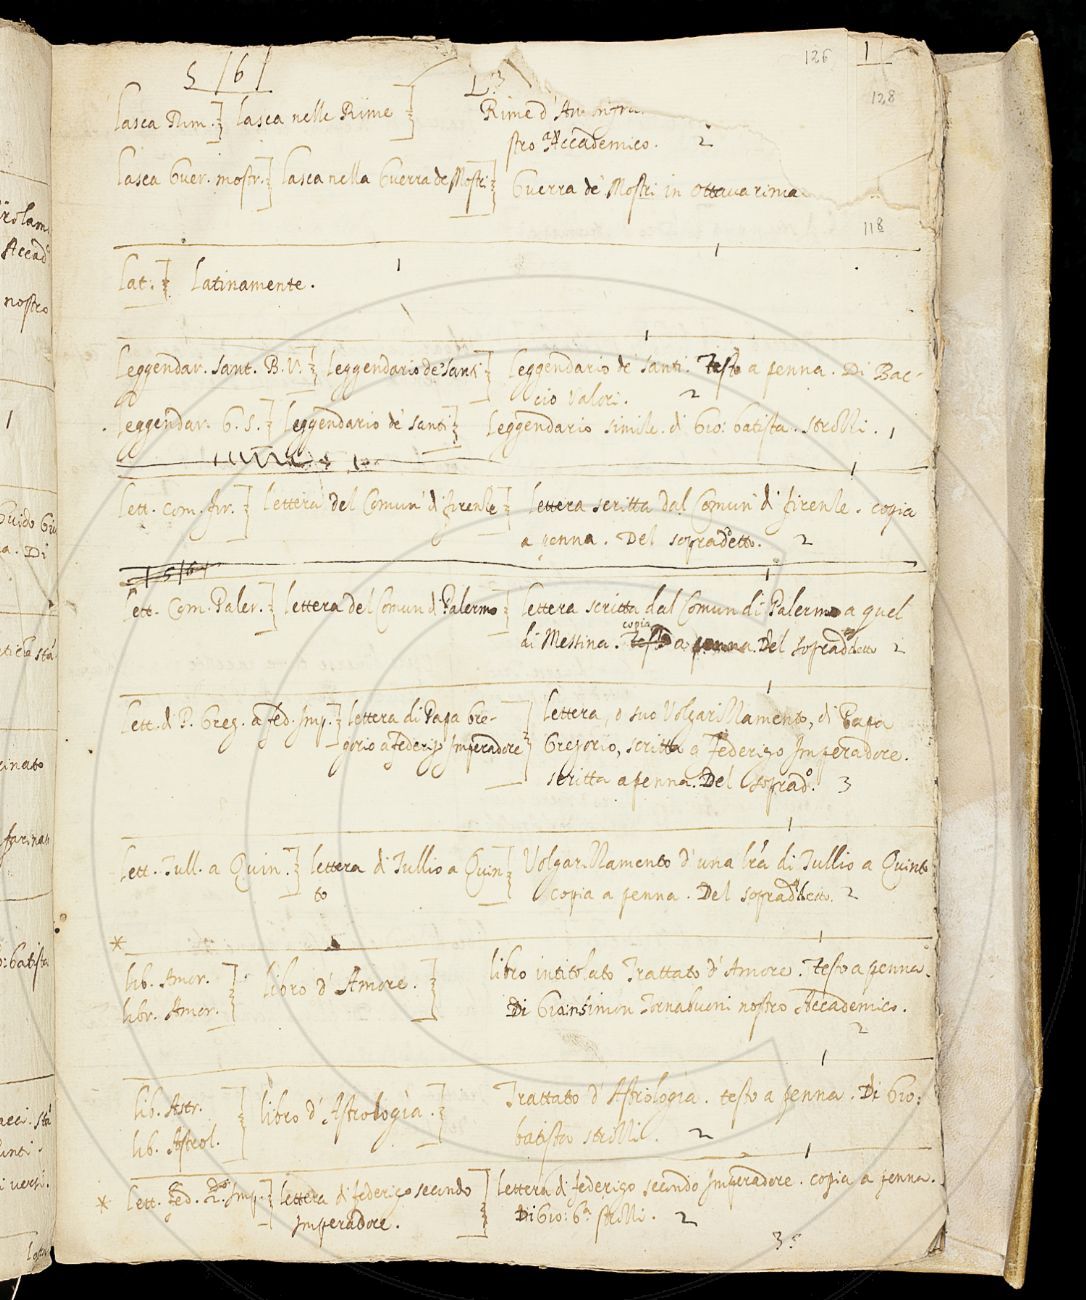 5 / 6 /
L. 3
126
1
128
Lasca Rim. } Lasca nelle Rime } Rime d'Anton fra
stro Accademico. 2
Lasca Guer. mostr. } Lasca nella Guerra de Mostri } Guerra de' Mostri in ottava rima
118
1 1
Lat. } Latinamente.
1
Leggendar. Sant. B. V. } Leggendario de' Santi } Leggendario de' Santi. Testo a penna. Di Bac-
cio Valori. 2
Leggendar. G. S. } Leggendario de' Santi } Leggendario simile. di Gio: batista. Strozzi. 1
1
Lett. Com. fir. } Lettera del Comun di firenze } Lettera scritta dal Comun di firenze. copia
a penna. Del sopradetto. 2
1
Lett. Com. Paler. } Lettera del Comun di Palermo } Lettera scritta dal Comun di Palermo a quel
copia
di Messina. Testo a penna. Del sopraddetto 2
1
Lett. d. P. Greg. a fed. Imp. } Lettera di Papa Gre- } Lettera, o suo Volgarizzamento, di Papa
gorio a federigo Imperadore Gregorio, scritta a Federigo Imperadore.
scritta a penna. Del soprado. 3
1
Lett. Tull. a Quin. } Lettera di Tullio a Quin } Volgarizzamento d'una lra di Tullio a Quinto
to copia a penna. Del sopraddetto. 2
* 1
Lib. Amor. } Libro d'Amore. } Libro intitolato Trattato d'Amore. Testo a penna.
Libr. Amor. Di Giansimon Tornabuoni nostro Accademico.
2
1
Lib. Astr. } Libro d'Astrologia. } Trattato d'Astrologia. testo a penna. Di Gio:
Lib. Astrol. batista Strozzi. 2
1
* Lett. Fed. 2do Imp. } Lettera di federigo secondo } Lettera di federigo secondo Imperadore. copia a penna.
Imperadore. Di Gio: ba strozzi. 2
3